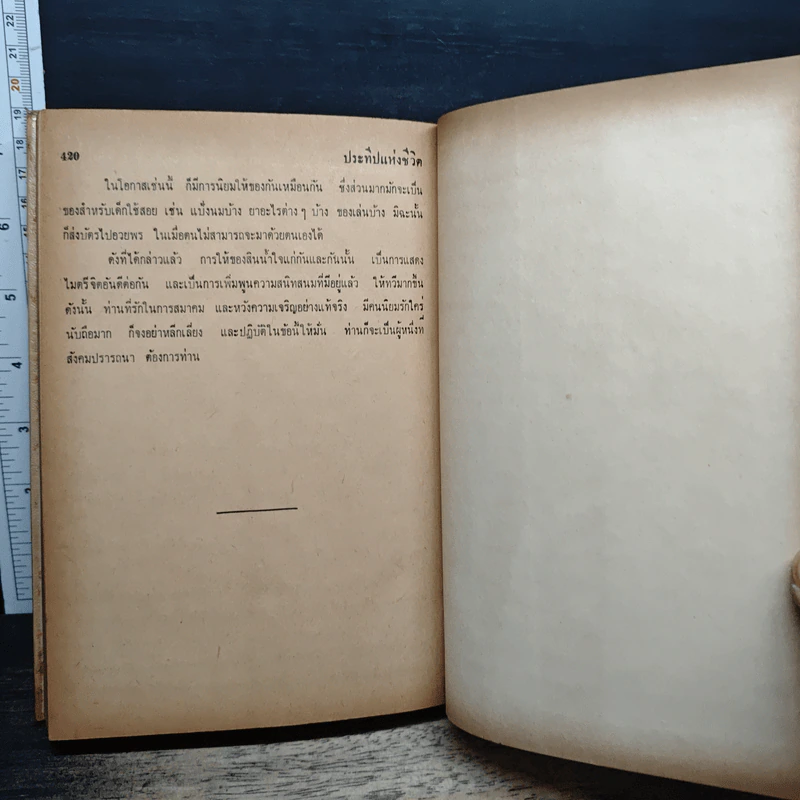 420 ประทีปแห่งชีวิต
ในโอกาสเช่นนี้ ก็มีการนิยมให้ของกันเหมือนกัน ซึ่งส่วนมากมักจะเป็น
ของสำหรับเด็กใช้สอย เช่น แป้งนมบ้าง ยาอะไรต่างๆ บ้าง ของเล่นบ้าง มิฉะนั้น
ก็ส่งบัตรไปอวยพร ในเมื่อตนไม่สามารถจะมาด้วยตนเองได้
ดังที่ได้กล่าวแล้ว การให้ของสินน้ำใจแก่กันและกันนั้น เป็นการแสดง
ไมตรีจิตอันดีต่อกัน และเป็นการเพิ่มพูนความสนิทสนมที่มีอยู่แล้ว ให้ทวีมากขึ้น
ดังนั้น ท่านที่รักในการสมาคม และหวังความเจริญอย่างแท้จริง มีคนนิยมรักใคร่
นับถือมาก ก็จงอย่าหลีกเลี่ยง และปฏิบัติในข้อนี้ให้มั่น ท่านก็จะเป็นผู้หนึ่งที่
สังคมปรารถนา ต้องการท่าน
22
21
20
19
18
17
16
7
6
5
4
3